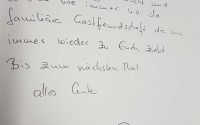 wie immer
familiäre Gastfreundschaft die uns
immer wieder zu Euch zieht
Bis zum nächsten Mal
alles Gute